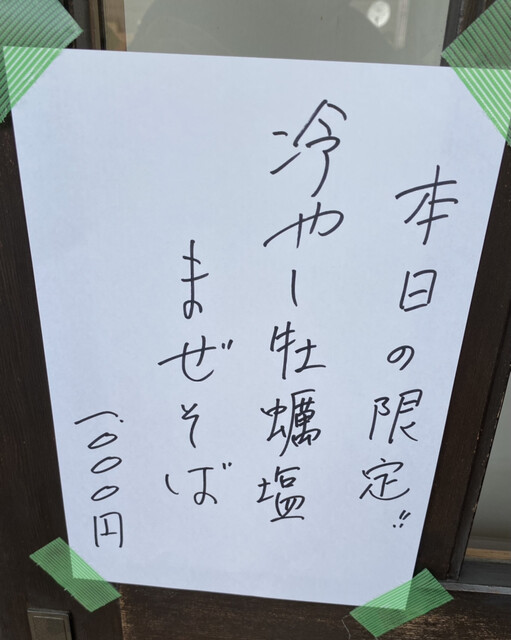 本日の限定!!
冷やし牡蠣塩
まぜそば
1.000円